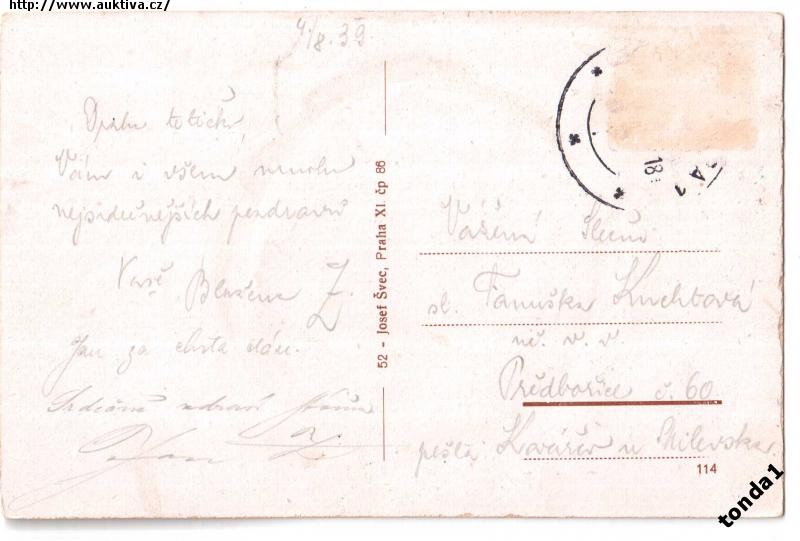 http://www.auktiva.cz/
4/8. 39
Drahá tetičko,
Vám i všem mnoho
nejsrdečnějších pozdravů
Vaše Blažena Z.
Jan za chvíli
Srdečně zdraví
52 - Josef Švec, Praha XI. čp 86
18
Vážená Slečna
sl. Fanuška Kuchtová
Předbořice č. 60
pošta Kovářov u Milevska
114
tonda1